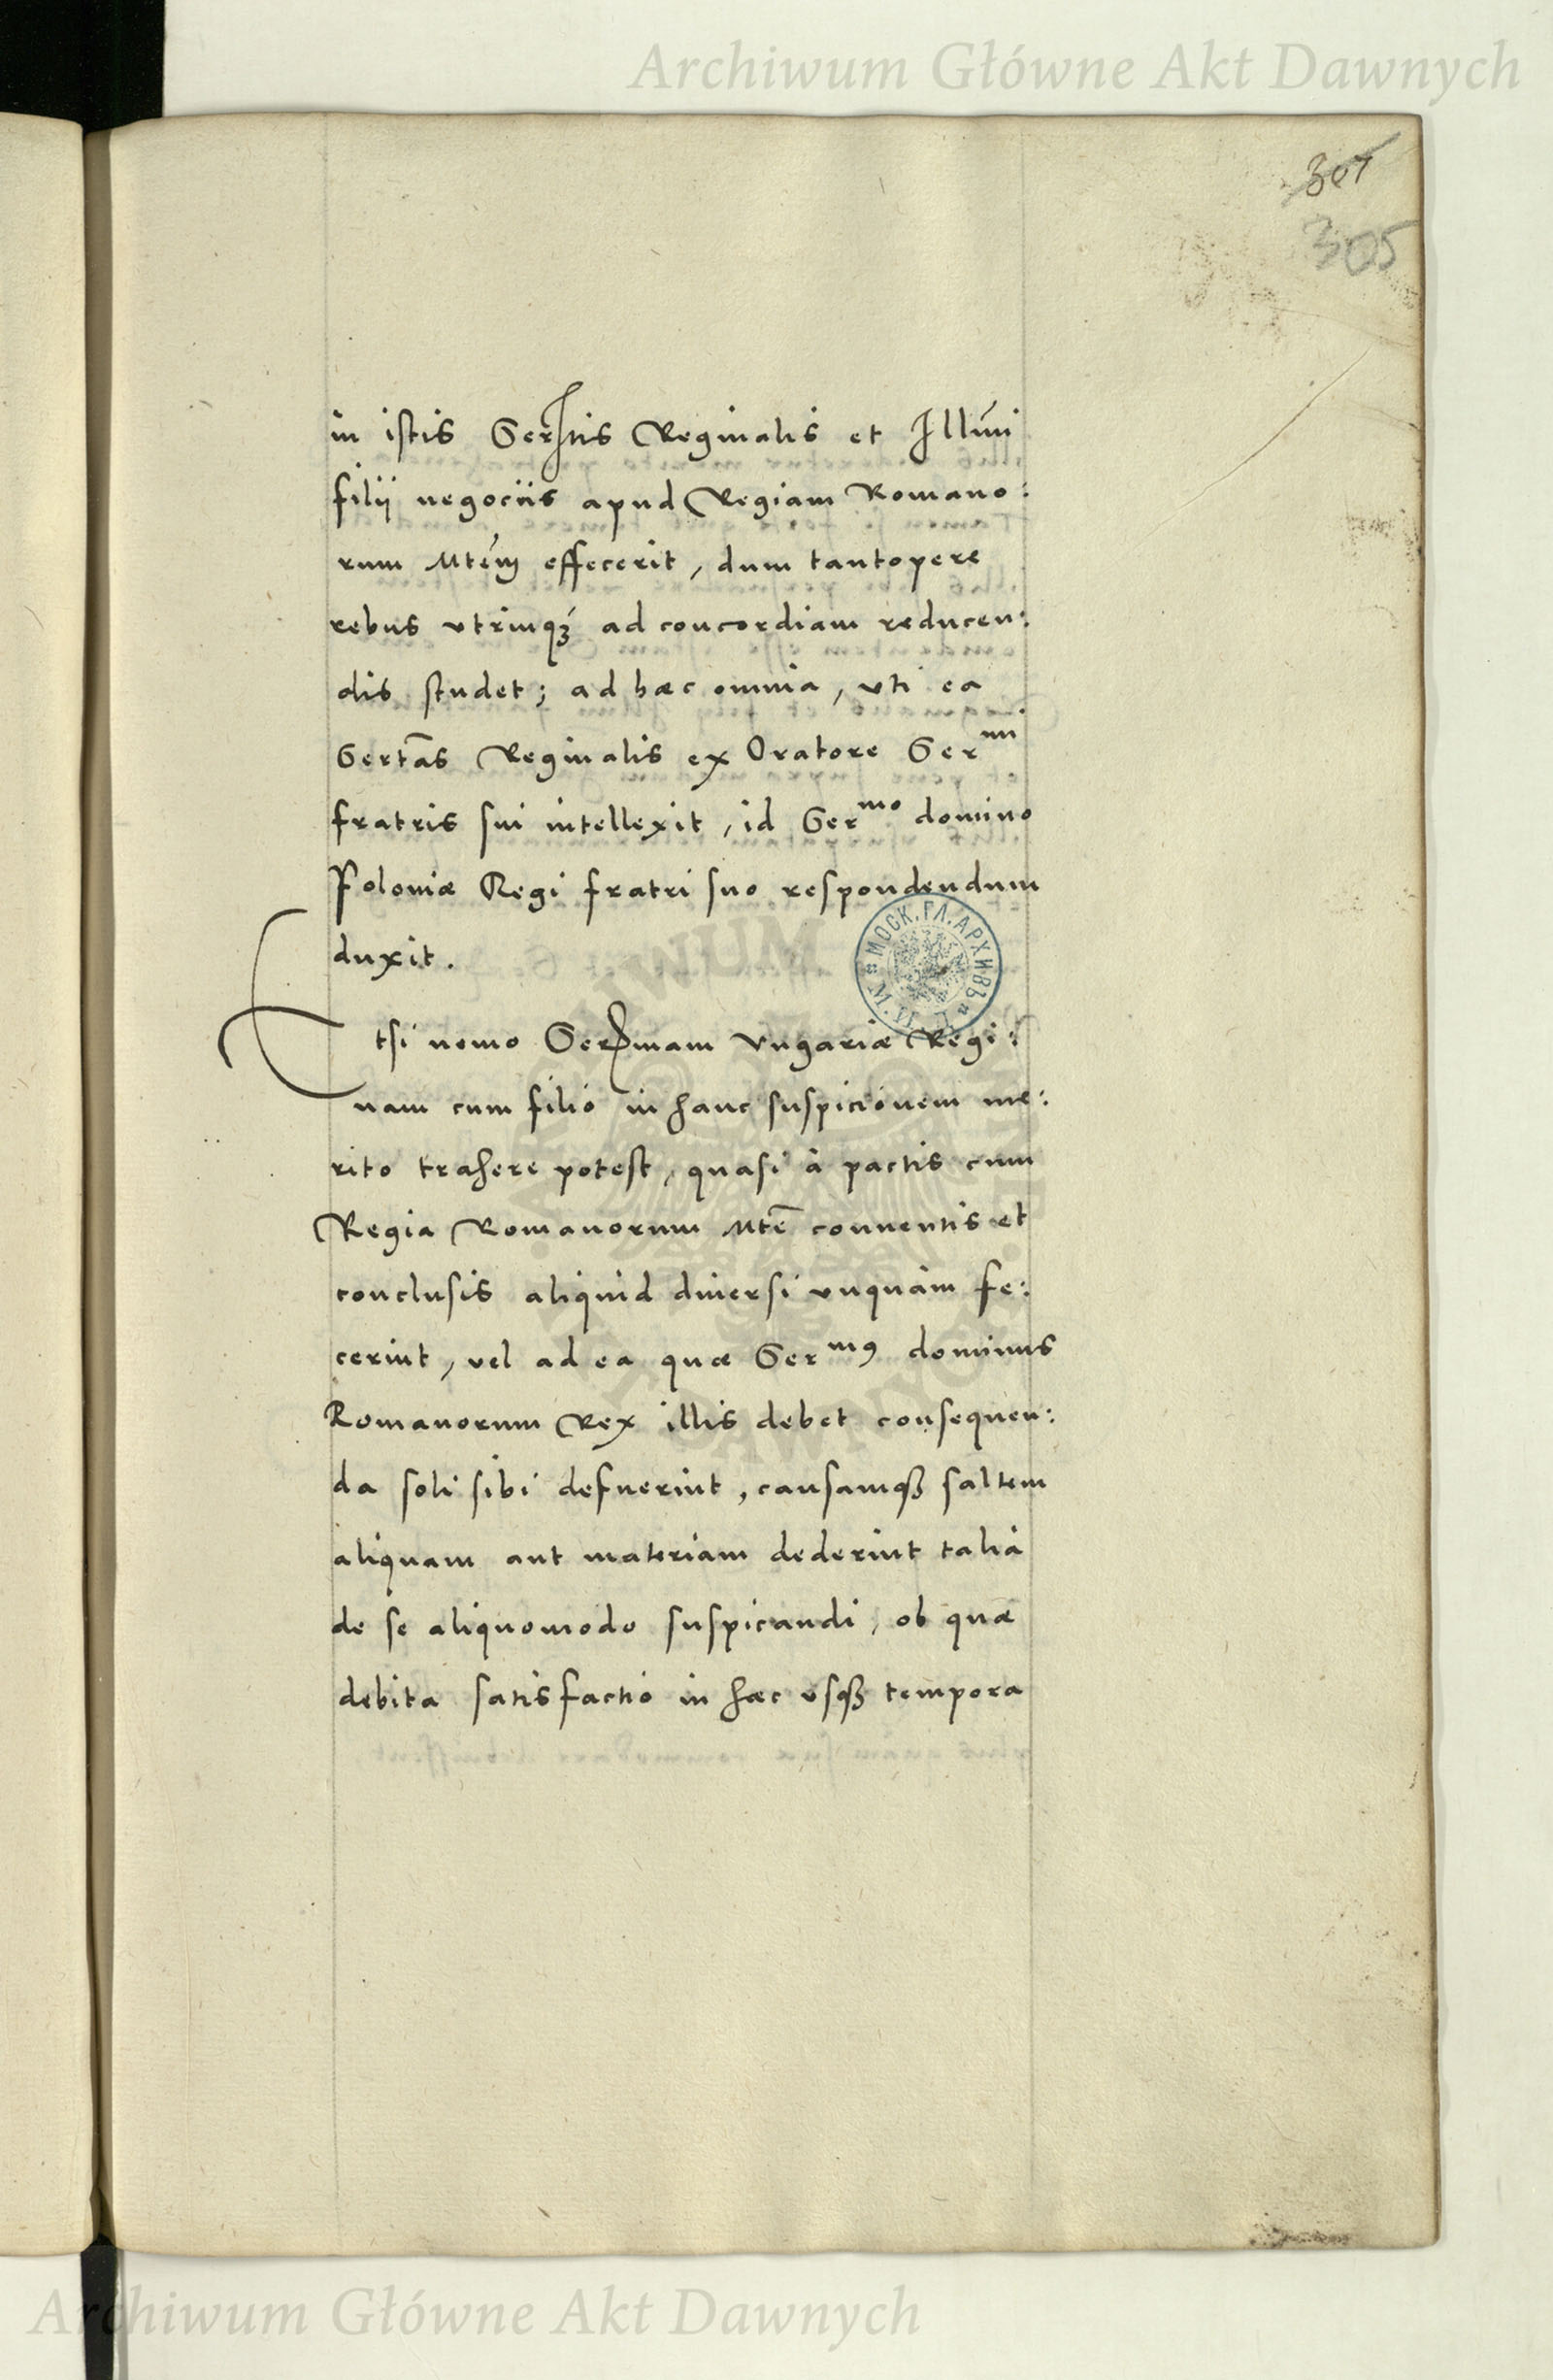 Archiwum Główne Akt Dawnych
301
305
in istis Sertis Reginalis et Illmi
filii negociis apud Regiam Romano:
rum Mtem effecerit, dum tantopere
rebus utrinq3 ad concordiam reducen:
dis studet; ad hæc omnia, uti ea
Sertas Reginalis ex Oratore Sermi
fratris sui intellexit, id Sermo domino
Poloniæ Regi fratri suo respondendum
duxit.
Etsi nemo Sermam Vngariæ Regi:
nam cum filio in hanc suspicionem me:
rito trahere potest, quasi à pactis cum
Regia Romanorum Mte conuentis et
conclusis aliquid diuersi unquam fe:
cerint, vel ad ea quæ Serm9 dominus
Romanorum Rex illis debet consequen:
da soli sibi defuerint, causamq3 saltem
aliquam aut materiam dederint talia
de se aliquomodo suspicandi, ob quæ
debita satisfactio in hæc usq3 tempora
МОСК. ГЛ. АРХИВЪ М. И. Д.
Archiwum Główne Akt Dawnych